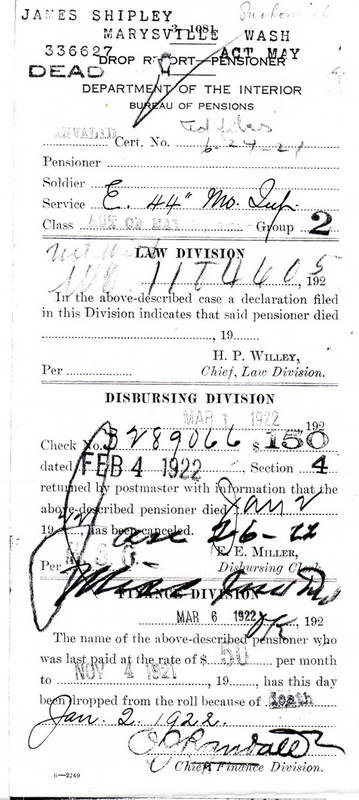 JAMES SHIPLEY
MARYSVILLE WASH
336627 ACT MAY
DROP REPORT—PENSIONER
DEAD
DEPARTMENT OF THE INTERIOR
BUREAU OF PENSIONS
INVALID
Cert. No.
Pensioner
Soldier
Service E. 44" Mo. Inf.
Class ACT OF MAY Group 2
LAW DIVISION
, 192
In the above-described case a declaration filed
in this Division indicates that said pensioner died
, 19
H. P. WILLEY,
Per Chief, Law Division.
DISBURSING DIVISION
MAR 1 1922 , 192
Check No. 3289066 $ 150
dated FEB 4 1922, Section 4
returned by postmaster with information that the
above-described pensioner died Jan 2
1922, has been canceled.
2-6-22
E. E. MILLER,
Per Disbursing Clerk.
FINANCE DIVISION
MAR 6 1922, 192
The name of the above-described pensioner who
was last paid at the rate of $ 50 per month
to NOV 4 1921, 19, has this day
been dropped from the roll because of death
Jan. 2, 1922.
Chief, Finance Division.
6—2269